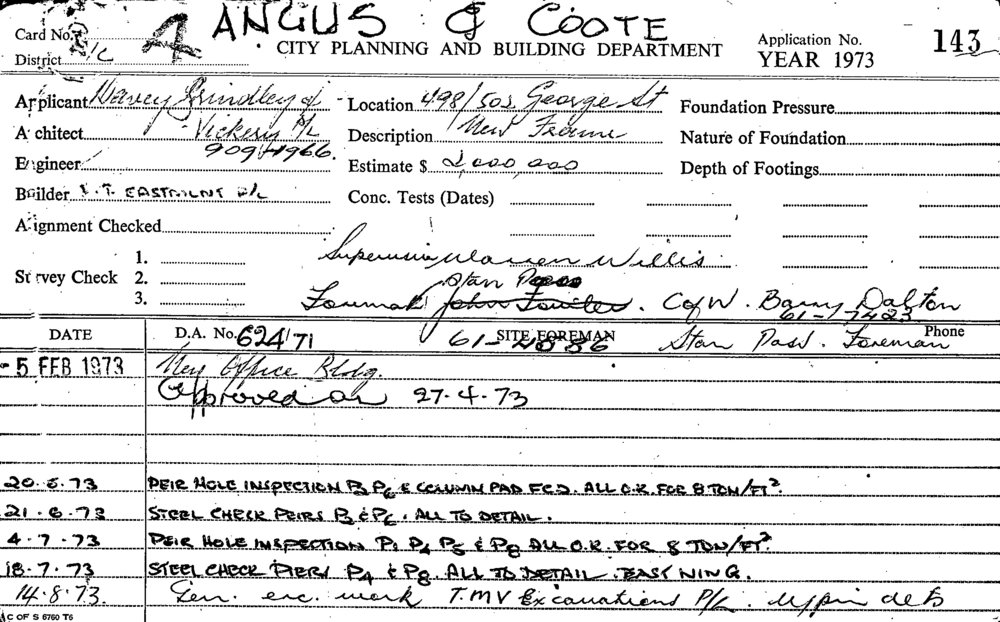 ANGUS & COOTE
Card No.
District
CITY PLANNING AND BUILDING DEPARTMENT
Application No. 143
YEAR 1973
Applicant Harvey Grindley &
Vickery P/L
Architect
909-1966
Engineer
Builder E.T. EASTMENT P/L
Alignment Checked
Survey Check 1.
2.
3.
Location 498/502 George St
Description New Frame
Estimate $ 2,000,000
Conc. Tests (Dates)
Foundation Pressure
Nature of Foundation
Depth of Footings
Warren Willis
Stan Pass
Foreman John Fowler. C of W. Barry Dalton
61-17423
DATE D.A. No. 624/71 SITE FOREMAN Stan Pass. Foreman Phone
- 5 FEB 1973 New Office Bldg.
Approved on 27.4.73
20.6.73 PEIR HOLE INSPECTION P3 P6 & COLUMN PAD FC2. ALL O.K. FOR 8 TON/FT².
21.6.73 STEEL CHECK PEIRS P3 & P6. ALL TO DETAIL.
4.7.73 PEIR HOLE INSPECTION P1 P4 P5 & P8 ALL O.K. FOR 8 TON/FT².
18.7.73 STEEL CHECK PIERS P4 & P8. ALL TO DETAIL.
14.8.73. Gen. exc. work T.M.V Excavations P/L.
C OF S 6760 T6